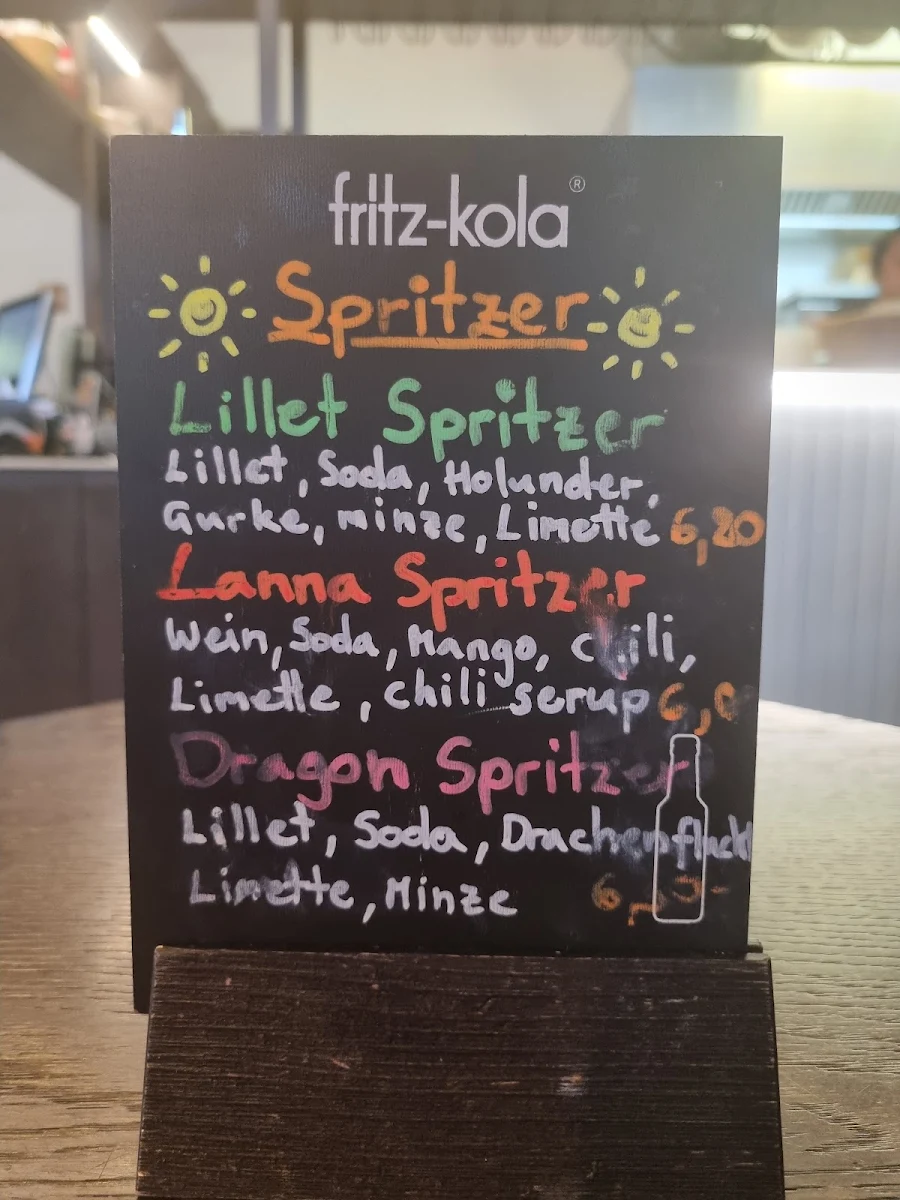 fritz-kola®
Spritzer
Lillet Spritzer
Lillet, Soda, Holunder,
Gurke, minze, Limette 6,20
Lanna Spritzer
Wein, Soda, Mango, chili,
Limette, chili serup
Dragon Spritzer
Lillet, Soda,
Limette, Minze